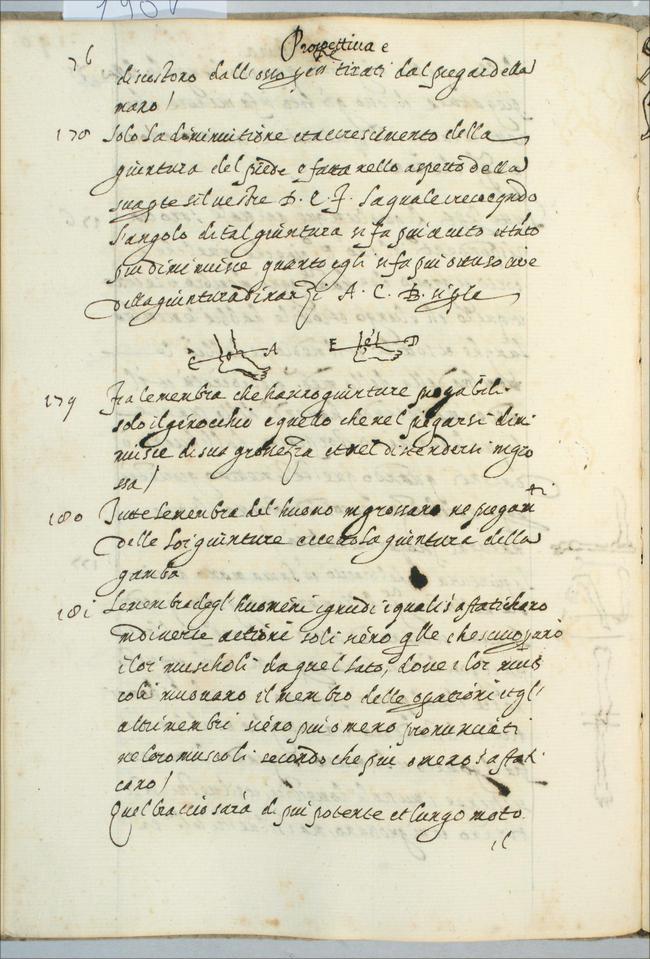 190v
Prospettiua e
76
discostoro dall osso son tirati dal piegar della
mano /
178 Solo la diminuitione et accrescimento della
giuntura del piede e fatta nello aspetto della
sua pte siluestre D. E. F. la quale crescendo
l'angolo di tal giuntura si fa piu acuto et tãto
piu diminuisce quanto egli si fa piu ottuso cioe
della giuntura dinanzi A. C. B. si
C A E D
179 Fra le membra che hanno giunture piegabili
solo il ginocchio e quello che nel piegarsi dimi
nuisce di sua grossezza et nel distendersi ingro
ssa /
180 Tutte le membra del huomo ingrossano ne piegam
ti
delle lor giunture eccetto la giuntura della
gamba
181 Le membra degl' huomini ignudi i quali s'affatichano
in diuerse attioni soli sieno qlle che scuoprano
i lor muscholi da quel lato, doue i lor mus
coli muouano il membro delle opationi et gl'
altri membri sieno piu o meno pronuntiati
ne loro muscoli secondo che piu o meno s'affati
cano /
Quel braccio sara di piu potente et lungo moto
il